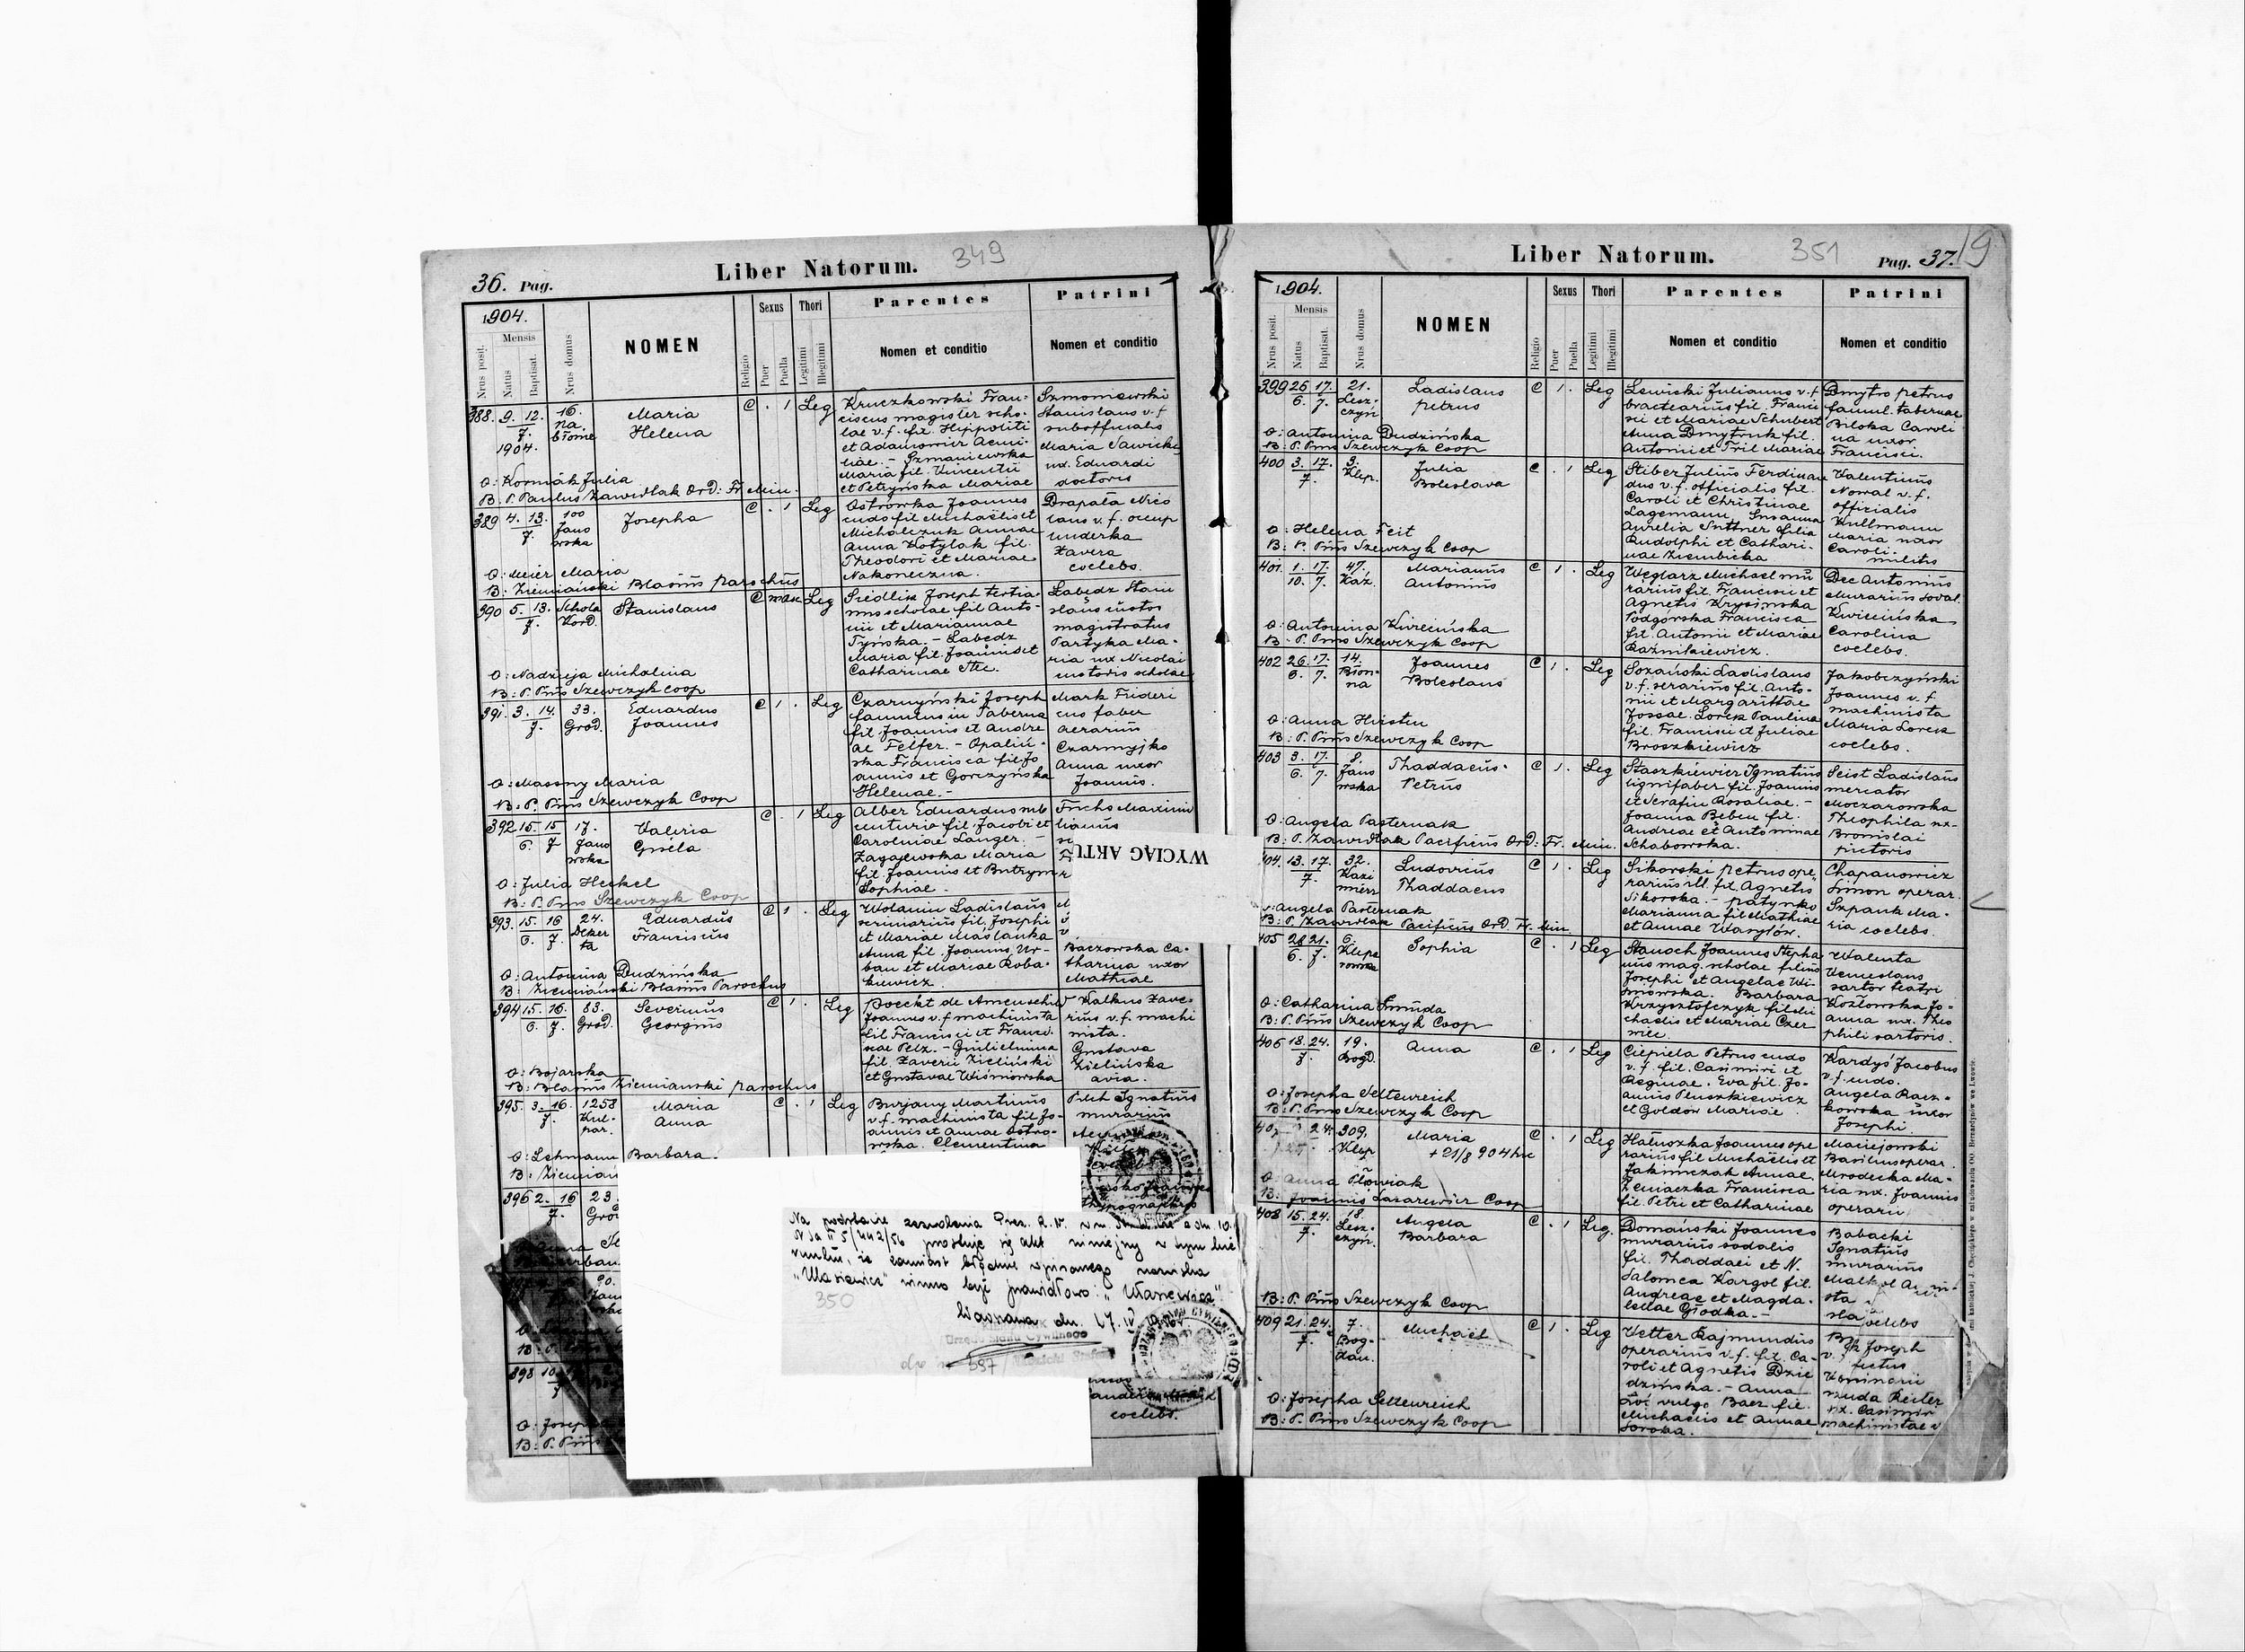 36. Pag.
Liber Natorum.
349
1904.
Nrus posit.
Mensis
Natus
Baptisat.
Nrus domus
NOMEN
Religio
Sexus
Puer
Puella
Thori
Legitimi
Illegitimi
Parentes
Nomen et conditio
Patrini
Nomen et conditio
388. 9. 12. 16.
7. Na
1904. błonie
Maria
Helena
C . 1 Leg
Kruczkowski Fran-
ciscus magister scho-
lae v.f. fil. Hippoliti
Maria fil. Vincentii
et Petryńska Mariae
Stanislaus v.f.
subofficialis
ux. Eduardi
doctoris
O: Kormák Julia
B: P. Paulus Zawidlak Ord: Fr. Min.
389 4. 13. 100
7. Jano
wska
Josepha
C . 1 Leg
Ostrowka Joannes
cudo fil Michaëlis et
Michalczuk Annae
Anna Kotylak fil.
Theodori et Mariae
Nakoneczna.
Drapała Nico
laus v.f. occup
Xavera
coelebs.
O: Meier Maria
B: Ziemiański Blasius parochus
390 5. 13. Schola
7. Kord.
Stanislaus
C mas. Leg
Siedlik Joseph tertia
nus scholae fil Anto-
nii et Mariannae
Tyńska. - Łabędz
Maria fil. Joannis et
Catharinae Stec.
Łabędz Stani
slaus custos
magistratus
Partyka Ma-
ria ux Nicolai
custoris scholae
O: Nadzieja Michalina
B: P. Pius Szewczyk coop
391. 3. 14. 33.
7. Grod.
Eduardus
Joannes
C 1 . Leg
Czarnyński Joseph
famulus in Taberna
fil Joannis et Andre
ae Felfer. - Opaliń-
ska Francisca fil. Jo
annis et Gorczyńska
Helenae. -
Mark Frideri
cus faber
aerarius
Czarmyjko
Anna uxor
Joannis.
O: Massny Maria
B: P. Pius Szewczyk Coop
392 15. 15 17.
6. 7 Jano
wska
Valeria
Gisela
C . 1 Leg
Alber Eduardus sub
centurio fil. Jacobi et
Carolinae Langer.
Zagajewska Maria
fil Joannis et Butrym
Sophiae.
Fuchs Maximi
lianus
WYCIĄG AKTU
O: Julia Heckel
B: P. Pius Szewczyk Coop
393. 15. 16 24.
6. 7. Deker
ta
Eduardus
Franciscus
C 1 . Leg
Wolanin Ladislaus
scriniarius fil. Josephi
et Mariae Maślanka
Anna fil. Joannis Ur-
ban et Mariae Roba-
kiewicz.
Baczowska Ca-
tharina uxor
Mathiae
O: Antonina Dudzińska
B: Ziemiański Blasius Parochus
394 15. 16. 83.
6. 7. Grod.
Severinus
Georgius
C 1 . Leg
Joannes v.f machinista
fil Francisci et Franci-
scae Pelz. - Guilielmina
fil. Xaverii Zieliński
et Gustavae Wiśniowska
Walkus Xave-
rius v.f. machi
nista.
Gustava
Zielińska
avia.
O: Bojarska
B: Blasius Ziemianski parochus
395. 3. 16. 1258
7. Kul-
par.
Maria
Anna
C . 1 Leg
Burjany Martinus
v.f. machinista fil Jo-
annis et Annae Ostro-
wska. Clementina
Pilch Ignatius
murarius
O: Lehmann Barbara.
B: Ziemian
396 2. 16 23.
7. Gro
typographus
Na podstawie zezwolenia Prez. R.N.
N Sa II 5/442/56 prostuje się akt niniejszy w tym kie
runku, że zamiast błędnie wpisanego nazwiska
winno być prawidłowo:
350
Warszawa dn. 17. IV
Urzędu Stanu Cywilnego
898 10.
7
O: Josepha
B: P. Pius
coelebs.
Liber Natorum.
351
Pag. 37.
9
1904.
Nrus posit.
Mensis
Natus
Baptisat.
Nrus domus
NOMEN
Religio
Sexus
Puer
Puella
Thori
Legitimi
Illegitimi
Parentes
Nomen et conditio
Patrini
Nomen et conditio
399 26 17. 21.
6. 7. Lesz-
czyń
Ladislaus
Petrus
C 1 . Leg
Lewicki Julianus v.f.
bractearius fil. Franci
sci et Mariae Schubert
Anna Dmytruk fil.
Antoni et Tril Mariae
Dmytro Petrus
famul. tabernae
Biloka Caroli
na uxor
Francisci.
O: Antonina Dudzińska
B: P. Pius Szewczyk Coop
400 3. 17. 9.
7. Klep.
Julia
Boleslava
C . 1 Leg
Stiber Julius Ferdinan
dus v.f. officialis fil.
Caroli et Christinae
Lagemann Susanna
Aurelia Suttner filia
Rudolphi et Cathari-
nae Ziembicka
Valentinus
Nowal v.f.
offizialis
Kullmann
Maria uxor
Caroli.
militis
O: Helena Feit
B: P. Pius Szewczyk Coop
401. 1. 17. 47.
10. 7. Kaz.
Marianus
Antonius
C 1 . Leg
Węglarz Michael mu
rarius fil. Francisci et
Agnetis Krysinska
Podgórska Francisca
fil. Antonii et Mariae
Kaźmikiewicz.
Dec Antonius
Murarius sodal.
Kwiecińska
Carolina
coelebs.
O: Antonina Kwiecińska
B: P. Pius Szewczyk Coop
402 26 17. 14.
6. 7. Błon-
na
Joannes
Boleslaus
C 1 . Leg
Sozański Ladislaus
v.f. serarius fil. Anto-
nii et Margarittae
Jossae. Lorek Paulina
fil. Francisci et Juliae
Broszkiewicz
Jakobczyński
Joannes v.f.
machinista
Maria Lorek
coelebs.
O: Anna Hirsten
B: P. Pius Szewczyk Coop
403 3. 17. 8.
6. 7. Jano
wska
Thaddaeus
Petrus
C 1 . Leg
Staszkiewicz Ignatius
lignifaber fil. Joannis
et Serafin Rosaliae. -
Joanna Beben fil.
Andreae et Antoninae
Schabowska.
Seist Ladislaus
mercator
Moczarowska
Theophila ux-
Bronislai
pictoris
O: Angela Pasternak
B: P. Zawidlak Pacificus Ord: Fr. Min.
404. 13. 17. 32.
7. Kazi
mierz
Ludovicus
Thaddaeus
C 1 . Leg
Sikorski Petrus ope
rarius ill. fil. Agnetis
Sikorska. - Patynko
Marianna fil Mathiae
et Annae Wasylów.
Chapanowicz
Simon operar.
Szpank Ma-
ria coelebs.
O: Angela Pasternak
B: P. Zawidlak Pacificus Ord. Fr. Min
405 28 21. 6.
6. 7. Klepa
rowska
Sophia
C . 1 Leg
Stanoch Joannes Stepha
nus mag. scholae filius
Josephi et Angelae Wi-
śniowska. Barbara
Krzysztofczyk fil. Mi
chaelis et Mariae Czer
niec.
Walenta
Venceslaus
sartor teatri
Kozłowska Jo-
anna ux. Theo
phili sartoris.
O: Catharina Smuda
B: P. Pius Szewczyk Coop
406 18. 24. 19.
7. Bogd.
Anna
C . 1 Leg
Ciepiela Petrus cudo
v.f. fil. Casimiri et
Reginae. Eva fil. Jo-
annis Pluszkiewicz
et Goldow Mariae.
Kardyś Jacobus
v.f. cudo.
Angela Racz-
kowska uxor
Josephi.
O: Josepha Seltenreich
B: P. Pius Szewczyk Coop
407 24. 309.
Klep
Maria
+ 21/8 904 hic
C . 1 Leg
Hałuszka Joannes ope
rarius fil Michaëlis et
Jakimczak Annae.
Peniaczka Francisca
fil. Petri et Catharinae
Maciejowski
Basilius operar.
Mrodecka Ma-
ria ux. Joannis
operarii
O: Anna Płowiak
B: Joannis Lazarewicz Coop
408 15. 24. 18.
7. Lesz-
czyń.
Angela
Barbara
C . 1 Leg.
Domański Joannes
murarius sodalis
fil. Thaddaei et N.
Salomea Kargol fil.
Andreae et Magda-
lenae Głodka. -
Babacki
Ignatius
murarius
coelebs
B: P. Pius Szewczyk Coop
409 21. 24. 7.
7. Bog-
dan.
Michaël
C 1 . Leg
Vetter Rajmundus
operarius v.f. fil. Ca-
roli et Agnetis Dzie
dzińska. - Anna
Zoć vulgo Baez fil.
Michaelis et Annae
Soroka.
Joseph
Reiter
ux. Casimir
machinistae v
O: Josepha Seltenreich
B: P. Pius Szewczyk Coop